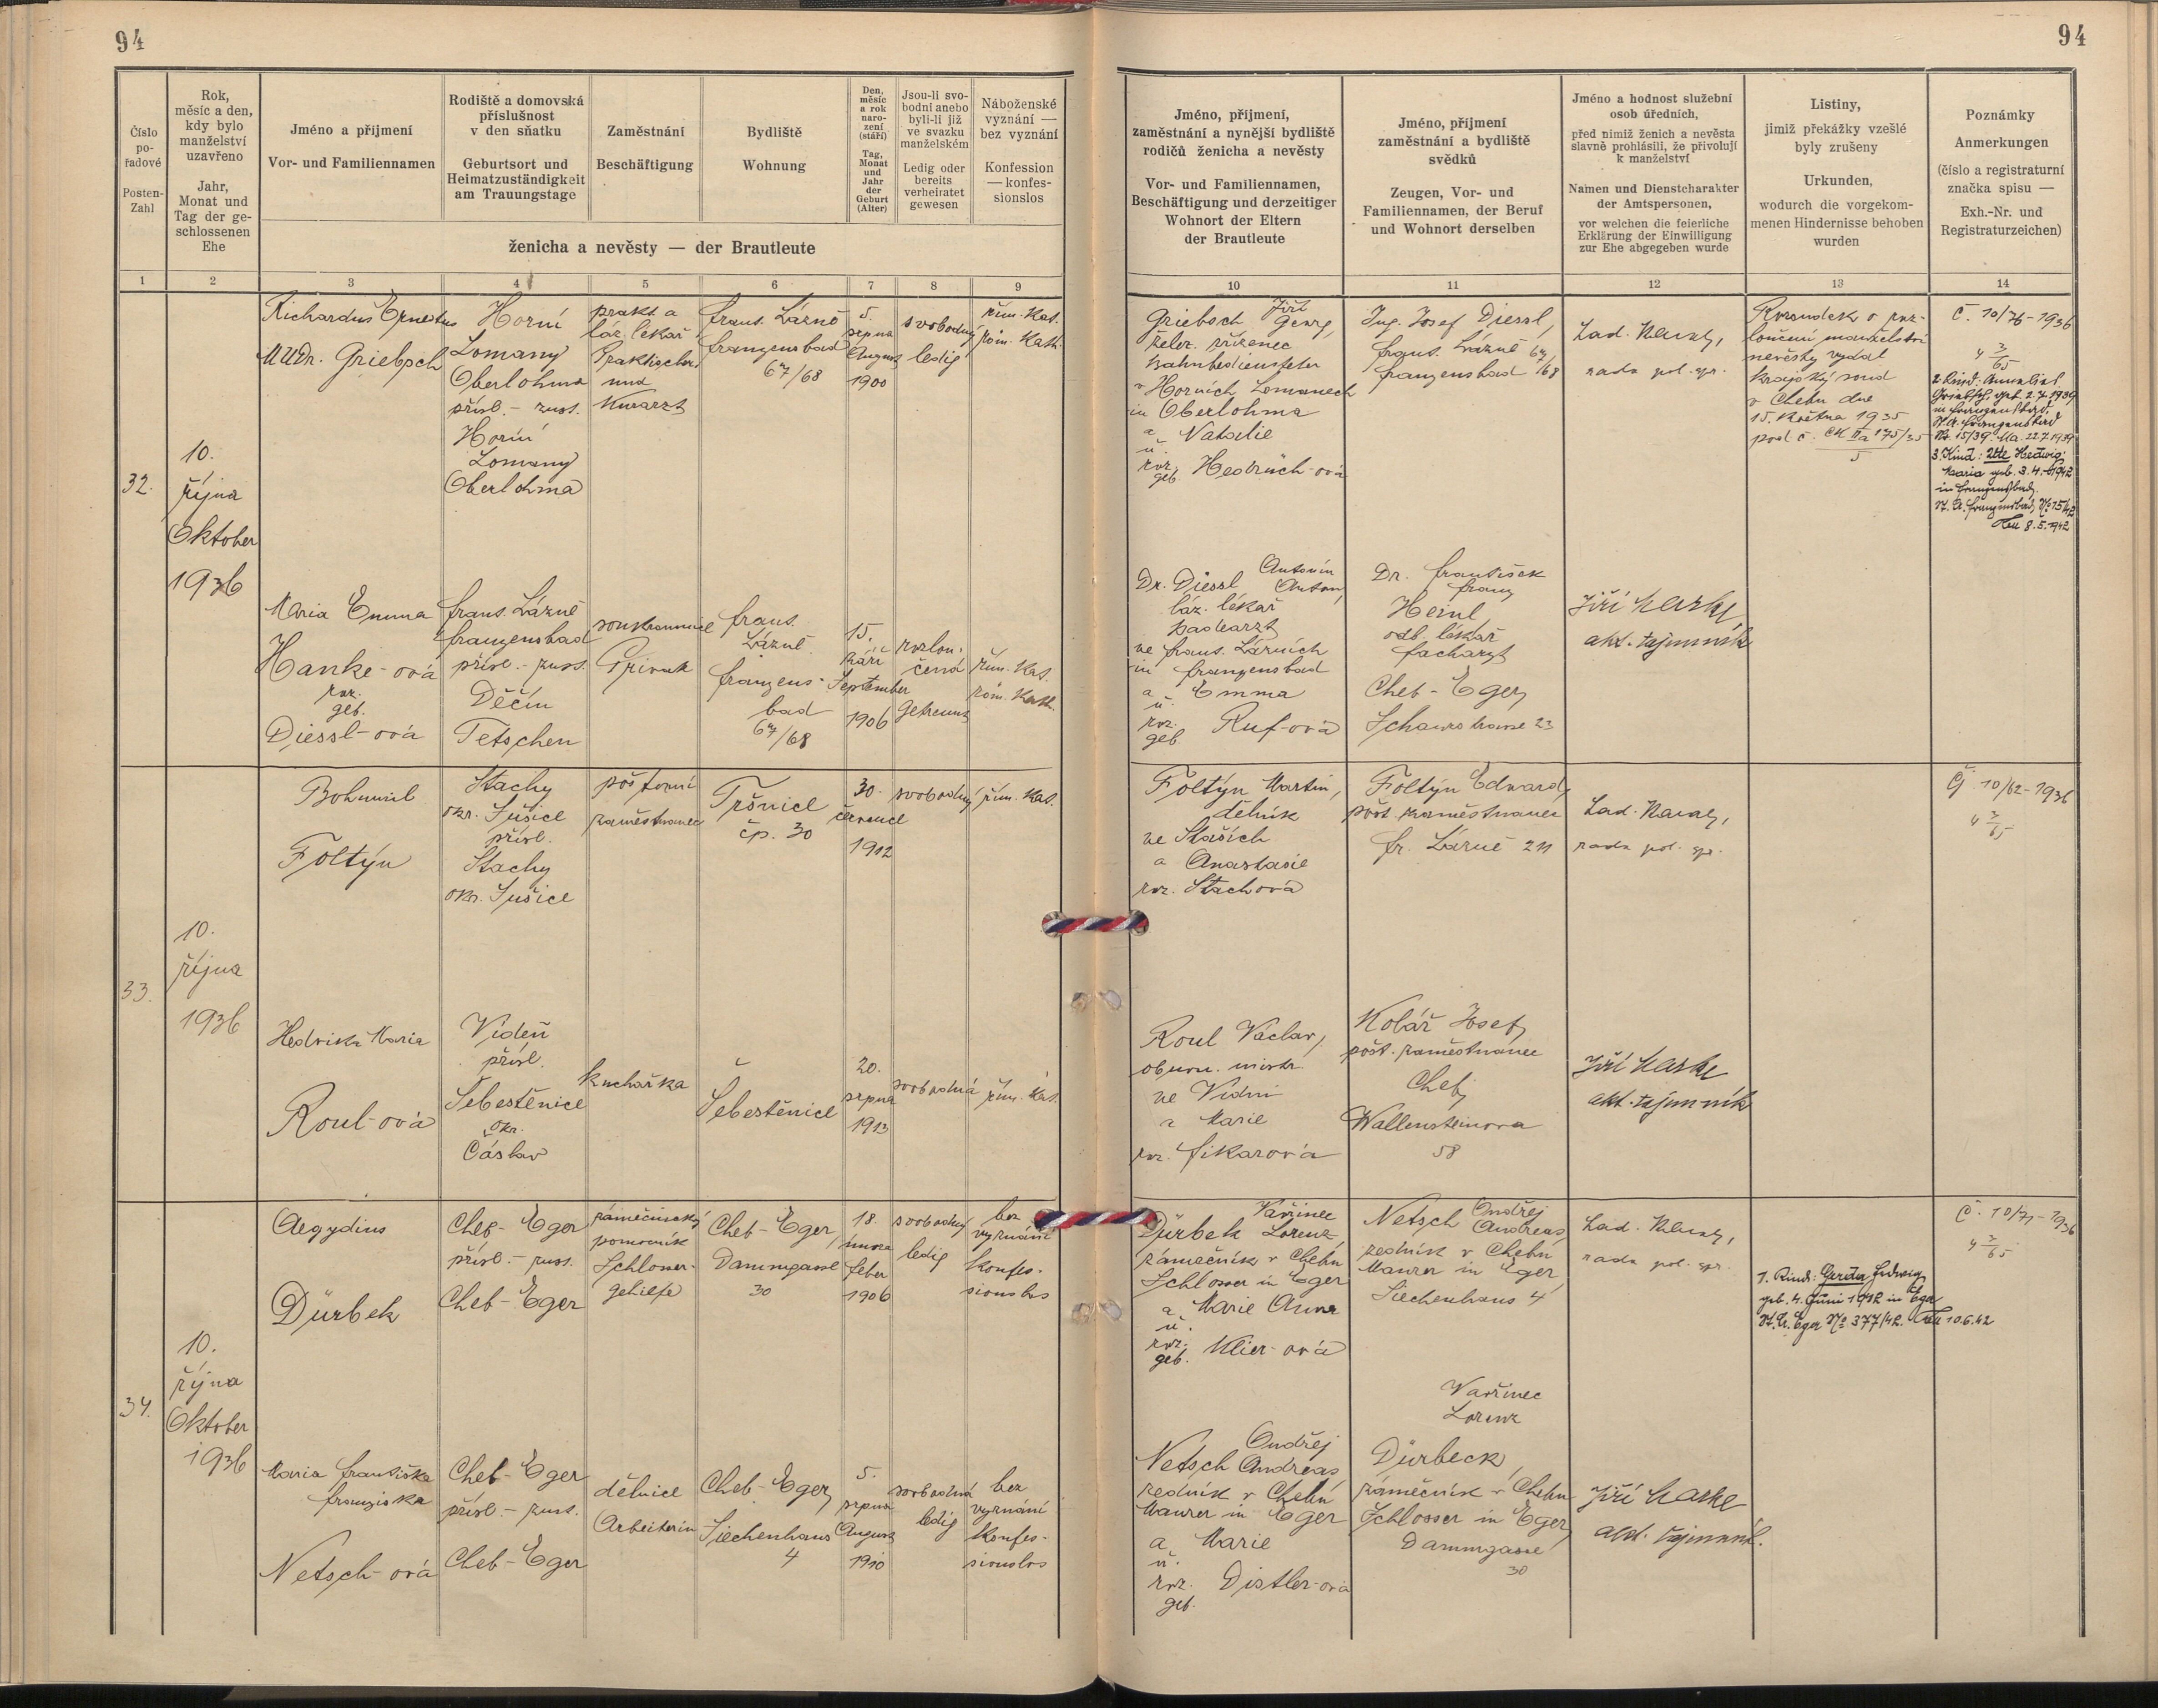 94
94
Číslo
po-
řadové
Posten-
Zahl
Rok,
měsíc a den,
kdy bylo
manželství
uzavřeno
Jahr,
Monat und
Tag der ge-
schlossenen
Ehe
Jméno a příjmení
Vor- und Familiennamen
Rodiště a domovská
příslušnost
v den sňatku
Geburtsort und
Heimatzuständigkeit
am Trauungstage
Zaměstnání
Beschäftigung
Bydliště
Wohnung
Den,
měsíc
a rok
naro-
zení
(stáří)
Tag,
Monat
und
Jahr
der
Geburt
(Alter)
Jsou-li svo-
bodni anebo
byli-li již
ve svazku
manželském
Ledig oder
bereits
verheiratet
gewesen
Náboženské
vyznání —
bez vyznání
Konfession
— konfes-
sionslos
ženicha a nevěsty — der Brautleute
Jméno, příjmení,
zaměstnání a nynější bydliště
rodičů ženicha a nevěsty
Vor- und Familiennamen,
Beschäftigung und derzeitiger
Wohnort der Eltern
der Brautleute
Jméno, příjmení
zaměstnání a bydliště
svědků
Zeugen, Vor- und
Familiennamen, der Beruf
und Wohnort derselben
Jméno a hodnost služební
osob úředních,
před nimiž ženich a nevěsta
slavně prohlásili, že přivolují
k manželství
Namen und Dienstcharakter
der Amtspersonen,
vor welchen die feierliche
Erklärung der Einwilligung
zur Ehe abgegeben wurde
Listiny,
jimiž překážky vzešlé
byly zrušeny
Urkunden,
wodurch die vorgekom-
menen Hindernisse behoben
wurden
Poznámky
Anmerkungen
(číslo a registraturní
značka spisu —
Exh.-Nr. und
Registraturzeichen)
1 2 3 4 5 6 7 8 9 10 11 12 13 14
32.
10.
října
Oktober
1936
Richardus Ernestus
MUDr. Griebsch
Horní
Lomany
Oberlohma
přísl. - zust.
Horní
Lomany
Oberlohma
prakt a
láz. lékař
Praktischer
und
Kurarzt
Frant. Lázně
Franzensbad
67/68
5.
srpna
August
1900
svobodný
ledig
řím. kat.
röm. kath.
Griebsch Jiří
Georg,
želez. zřízenec
Bahnbediensteter
v Horních Lomanech
in Oberlohma
a Natalie
u.
roz.
geb. Hedrüch-ová
Ing. Josef Diessl,
Frant. Lázně 67/
Franzensbad 68
rada pol. spr.
Rozsudek o roz-
loučení manželství
nevěsty vydal
Krajský soud
v Chebu dne
15. května 1935
pod č. Ck IIa 175/35
5
Č. 10/76-1936
4 3/65
2. Kind: Annelies
Griebsch, geb. 2.7.1939
in Franzensbad,
St.A. Franzensbad
Nr. 15/39. 22.7.1939
3. Kind: Ute Hedwig
Maria geb. 3.4.1942
in Franzensbad,
St. A. Franzensbad, No 15/42
8.5.1942
Maria Emma
Hanke-ová
roz.
geb.
Diessl-ová
Frant. Lázně
Franzensbad
přísl. - zust.
Děčín
Tetschen
soukromnice
Privat
Frant.
Lázně
Franzens-
bad
67/68
15.
září
September
1906
rozlou-
čená
getrennt
řím. kat.
röm. kath.
Dr. Diessl Antonín
Anton,
láz. lékař
Badearzt
ve Frant. Lázních
in Franzensbad
a Emma
u.
roz.
geb. Ruf-ová
Dr. František
Franz
Heinl
odb. lékař
Facharzt
Cheb - Eger,
Schanzstrasse 23
akt. tajemník
33.
10.
října
1936
Bohumil
Foltýn
Stachy
okr. Sušice
přísl.
Stachy
okr. Sušice
poštovní
zaměstnanec
Tršnice
čp. 30
30.
července
1912
svobodný
řím. kat.
Foltýn Martin,
dělník
ve Staších
a Anastasie
roz. Stachová
Foltýn Edward,
pošt. zaměstnanec
Fr. Lázně 211
rada pol. spr.
Čj 10/62-1936
4 3/65
Hedvika Maria
Roul-ová
Vídeň
přísl.
Šebestěnice
okr.
Čáslav
kuchařka
Šebestěnice
20.
srpna
1913
svobodná
řím. kat.
Roul Václav,
obuvn. mistr.
ve Vídni
a Marie
roz. Fikarová
Kolář Josef,
pošt. zaměstnanec
Cheb,
Wallensteinova
58
akt. tajemník
34.
10.
října
Oktober
1936
Aegydius
Dürbek
Cheb - Eger
přísl. - zust.
Cheb - Eger
zámečnický
pomocník
Schlosser-
gehilfe
Cheb - Eger,
Dammgasse
30
18.
února
Feber
1906
svobodný
ledig
bez
vyznání
konfes-
sionslos
Vavřinec
Dürbek Lorenz,
zámečník v Chebu
Schlosser in Eger
a Marie Anna
u.
roz.
geb. Klier-ová
Netsch Ondřej
Andreas,
zedník v Chebu
Maurer in Eger,
Siechenhaus 4
rada pol. spr.
Č. 10/71-1936
4 3/65
1. Kind: Gerda Hedwig
geb. 4. Juni 1942 in Eger
St.A. Eger No 377/42. 10.6.42
Maria Františka
Franziska
Netsch-ová
Cheb - Eger
přísl. - zust.
Cheb - Eger
dělnice
Arbeiterin
Cheb - Eger,
Siechenhaus
4
5.
srpna
August
1910
svobodná
ledig
bez
vyznání
konfes-
sionslos
Ondřej
Netsch Andreas,
zedník v Chebu
Maurer in Eger
a Marie
u.
roz. Distler-ová
geb.
Vavřinec
Lorenz
Dürbeck,
zámečník v Chebu
Schlosser in Eger,
Dammgasse
30
akt. tajemník.